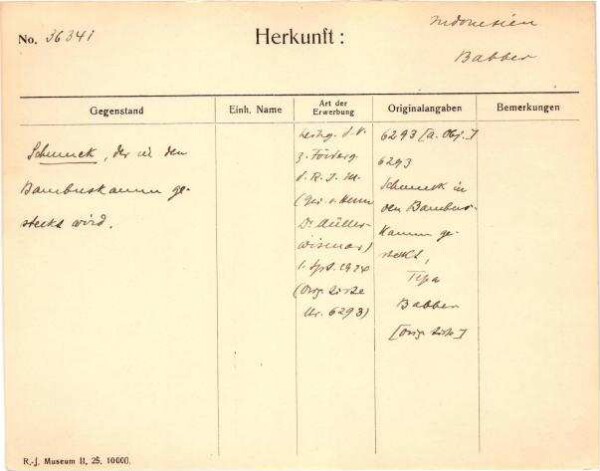 No. 36341
Herkunft:
Indonesien
Babber
Gegenstand
Einh. Name
Art der Erwerbung
Originalangaben
Bemerkungen
Schmuck, der in den
Bambuskamm ge-
steckt wird.
z. Förderg
d. R. J. M.
(der v. Herrn
Dr Müller-
Wismar)
1. Spt. 1914
(Orig. Liste
Nr. 6293)
6293 [a. Obj.]
6293
Schmuck in
den Bambus-
kamm ge-
steckt,
Tepa
Babber
[Orig. Liste]
R.-J. Museum II, 25. 10000.